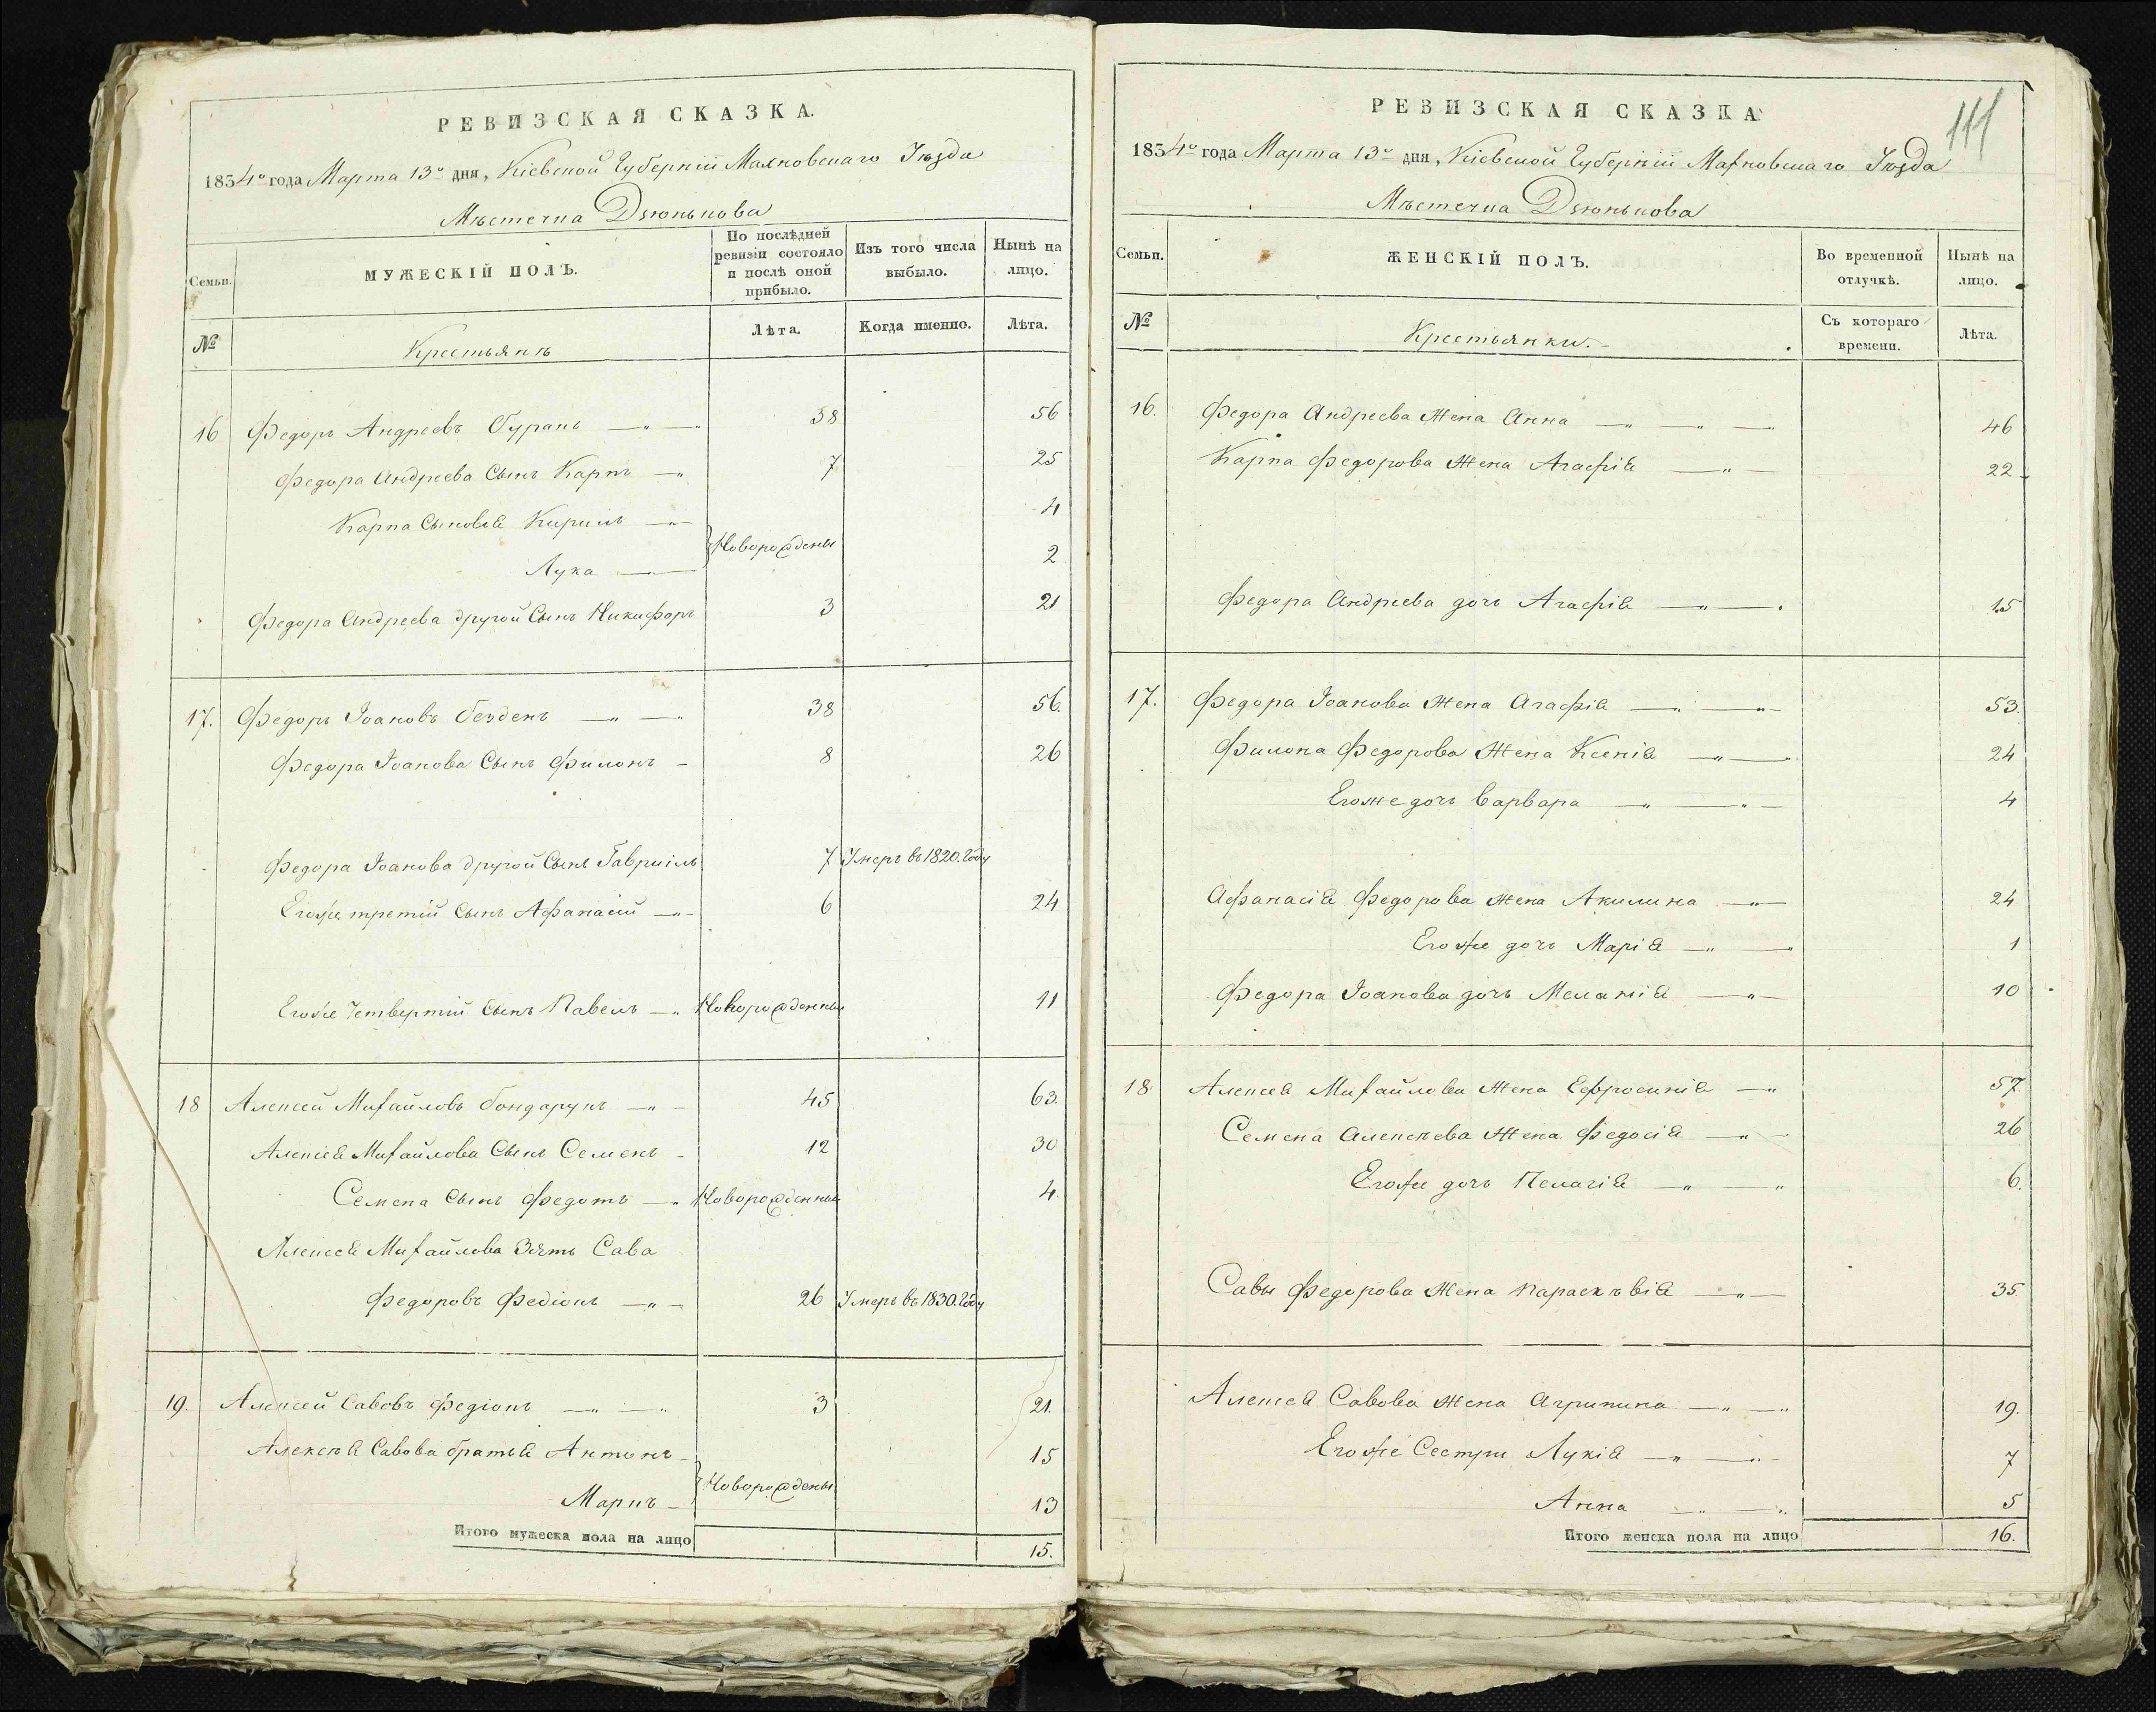 РЕВИЗСКАЯ СКАЗКА.
1834го года Марта 13го дня, Кіевской Губерніи Махновскаго Уезда
Местечка Дзюнькова
Семьи.
МУЖЕСКІЙ ПОЛЪ.
По послѣдней ревизіи состояло и послѣ оной прибыло.
Изъ того числа выбыло.
Нынѣ на лицо.
№
Крестьяне
Лѣта.
Когда именно.
Лѣта.
16 Федоръ Андреевъ Буранъ 38 56
Федора Андреева Сынъ Карпъ 7 25
Карпа Сыновья Кирилъ 4
Новорождены
Лука 2
Федора Андреева другой Сынъ Никифоръ 3 21
17. Федоръ Іоановъ Безденъ 38 56.
Федора Іоанова Сынъ Филонъ 8 26
Федора Іоанова другой Сынъ Гавриілъ 7 Умеръ въ 1820. Году
Егоже третій Сынъ Афанасій 6 24
Егоже Четвертій Сынъ Павелъ Новорожденный 11
18 Алексей Михайловъ Бондарукъ 45 63.
Алексея Михайлова Сынъ Семенъ 12 30
Семена Сынъ Федотъ Новорожденный 4.
Алексея Михайлова Зять Сава
Федоровъ Федіонъ 26 Умеръ въ 1830. Году
19. Алексей Савовъ Федіонъ 3 21.
Алексея Савова братья Антонъ 15
Новорождены
Маркъ 13
Итого мужеска пола на лицо 15.
111
РЕВИЗСКАЯ СКАЗКА
1834го года Марта 13го дня, Кіевской Губерніи Махновскаго Уезда
Местечка Дзюнькова
Семьи.
ЖЕНСКІЙ ПОЛЪ.
Во временной отлучкѣ.
Нынѣ на лицо.
№
Крестьянки.
Съ котораго времени.
Лѣта.
16. Федора Андреева Жена Анна 46
Карпа Федорова Жена Агафія 22
Федора Андреева дочь Агафія 15
17. Федора Іоанова Жена Агафія 53.
Филона Федорова Жена Ксенія 24
Егоже дочь Варвара 4
Афанасія Федорова Жена Акилина 24
Егоже дочь Марія 1
Федора Іоанова дочь Меланія 10
18 Алексея Михайлова Жена Ефросинія 57.
Семена Алексеева Жена Федосія 26
Егоже дочь Пелагія 6.
Савы Федорова Жена Параскевія 35
Алексея Савова Жена Агрипина 19.
Егоже Сестры Лукія 7
Анна 5
Итого женска пола на лицо 16.